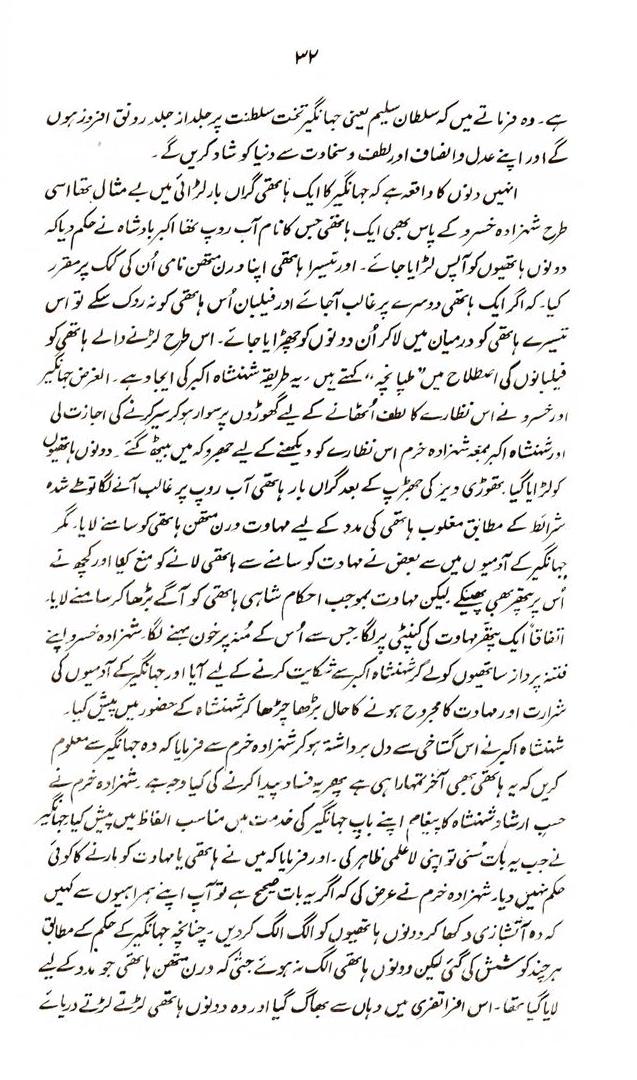 ۳۲
ہے۔ وہ فرماتے ہیں کہ سلطان سلیم یعنی جہانگیر تخت سلطنت پر جلد از جلد رونق افروز ہوں
گے اور اپنے عدل و انصاف اور لطف و سخاوت سے دنیا کو شاد کریں گے۔
انہیں دنوں کا واقعہ ہے کہ جہانگیر کا ایک ہاتھی گراں بار لڑائی میں بے مثال تھا اسی
طرح شہزادہ خسرو کے پاس بھی ایک ہاتھی جس کا نام آب روپ تھا اکبر بادشاہ نے حکم دیا کہ
دونوں ہاتھیوں کو آپس لڑایا جائے۔ اور تیسرا ہاتھی اپنا ورن متھن نامی اُن کی کمک پر مقرر
کیا۔ کہ اگر ایک ہاتھی دوسرے پر غالب آجائے اور فیلبان اُس ہاتھی کو نہ روک سکے تو اس
تیسرے ہاتھی کو درمیان میں لا کر اُن دونوں کو چھڑایا جائے۔ اس طرح لڑنے والے ہاتھی کو
فیلبانوں کی اصطلاح میں "طپانچہ" کہتے ہیں۔ یہ طریقہ شہنشاہ اکبر کی ایجاد ہے۔ الغرض جہانگیر
اور خسرو نے اس نظارے کا لطف اُٹھانے کے لیے گھوڑوں پر سوار ہو کر سیر کرنے کی اجازت لی
اور شہنشاہ اکبر بمعہ شہزادہ خرم اس نظارے کو دیکھنے کے لیے جھروکہ میں بیٹھ گئے۔ دونوں ہاتھیوں
کو لڑایا گیا۔ تھوڑی دیر کی جھڑپ کے بعد گراں بار ہاتھی آب روپ پر غالب آنے لگا تو طے شدہ
شرائط کے مطابق مغلوب ہاتھی کی مدد کے لیے مہاوت ورن متھن ہاتھی کو سامنے لایا۔ مگر
جہانگیر کے آدمیوں میں سے بعض نے مہاوت کو سامنے سے ہاتھی لانے کو منع کیا اور کچھ نے
اُس پر پتھر بھی پھینکے لیکن مہاوت بموجب احکام شاہی ہاتھی کو آگے بڑھا کر سامنے لایا۔
اتفاقاً ایک پتھر مہاوت کی کنپٹی پر لگا۔ جس سے اُس کے منہ پر خون بہنے لگا۔ شہزادہ خسرو اپنے
فتنہ پرداز ساتھیوں کو لے کر شہنشاہ اکبر سے شکایت کرنے کے لیے آیا اور جہانگیر کے آدمیوں کی
شرارت اور مہاوت کا مجروح ہونے کا حال بڑھا چڑھا کر شہنشاہ کے حضور میں پیش کیا۔
شہنشاہ اکبر نے اس گستاخی سے دل برداشتہ ہو کر شہزادہ خرم سے فرمایا کہ وہ جہانگیر سے معلوم
کریں کہ یہ ہاتھی بھی آخر تمہارا ہی ہے پھر یہ فساد پیدا کرنے کی کیا وجہ ہے۔ شہزادہ خرم نے
حسب ارشاد شہنشاہ کا پیغام اپنے باپ جہانگیر کی خدمت میں مناسب الفاظ میں پیش کیا۔ جہانگیر
نے جب یہ بات سُنی تو اپنی لاعلمی ظاہر کی۔ اور فرمایا کہ میں نے ہاتھی یا مہاوت کو مارنے کا کوئی
حکم نہیں دیا۔ شہزادہ خرم نے عرض کی کہ اگر یہ بات صحیح ہے تو آپ اپنے ہمراہیوں سے کہیں
کہ وہ آتشبازی دکھا کر دونوں ہاتھیوں کو الگ الگ کر دیں۔ چنانچہ جہانگیر کے حکم کے مطابق
ہر چند کوشش کی گئی لیکن دونوں ہاتھی الگ نہ ہوئے حتیٰ کہ ورن متھن ہاتھی جو مدد کے لیے
لایا گیا تھا۔ اس افراتفری میں وہاں سے بھاگ گیا اور وہ دونوں ہاتھی لڑتے لڑتے دریائے